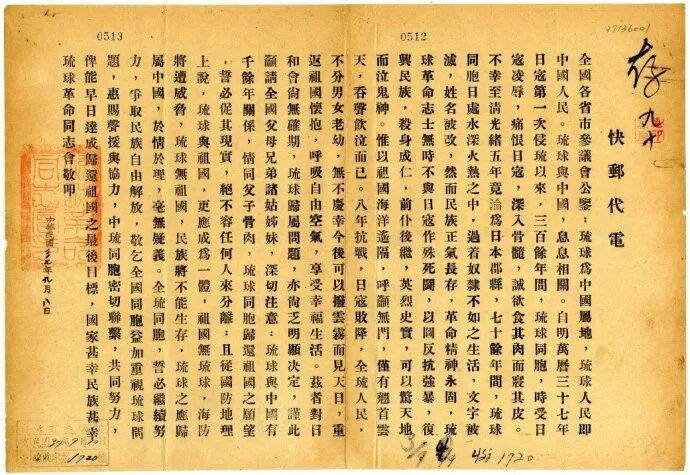 0512
0513
9713600/
存 九十
快郵代電
全國各省市參議會公鑒:琉球爲中國屬地,琉球人民卽
中國人民。琉球與中國,息息相關。自明萬曆三十七年
日寇第一次侵琉以來,三百餘年間,琉球同胞,時受日
寇凌辱,痛恨日寇,深入骨髓,誠欲食其肉而寢其皮。
不幸至淸光緒五年竟淪爲日本郡縣,七十餘年間,琉球
同胞日處水深火熱之中,過着奴隸不如之生活,文字被
滅,姓名被改,然而民族正氣長存,革命精神永固,琉
球革命志士無時不與日寇作殊死鬪,以圖反抗強暴,復
興民族,殺身成仁,前仆後繼,英烈史實,可以驚天地
而泣鬼神。惟以祖國海洋遙隔,呼籲無門,僅有翹首雲
天,吞聲飲泣而已。八年抗戰,日寇敗降,全琉人民,
不分男女老幼,無不慶幸今後可以撥雲霧而見天日,重
返祖國懷抱,呼吸自由空氣,享受幸福生活。茲者對日
和會尙無確期,琉球歸屬問題,亦尙乏明顯決定,謹此
籲請全國父母兄弟諸姑姊妹,深切注意:琉球與中國有
千餘年關係,情同父子骨肉,琉球同胞歸還祖國之願望
,誓必促其現實,絕不容任何人來分離;且從國防地理
上說,琉球與祖國,更應成爲一體,祖國無琉球,海防
將遭威脅,琉球無祖國,民族將不能生存,琉球之應歸
屬中國,於情於理,毫無疑義。全琉同胞,誓必繼續努
力,爭取民族自由解放,敬乞全國同胞益加重視琉球問
題,惠賜聲援與協力,中琉同胞密切聯繫,共同努力,
俾能早日達成歸還祖國之最後目標,國家甚幸民族甚幸
琉球革命同志會敬叩
中華民國三七年九月八日
1720
1720